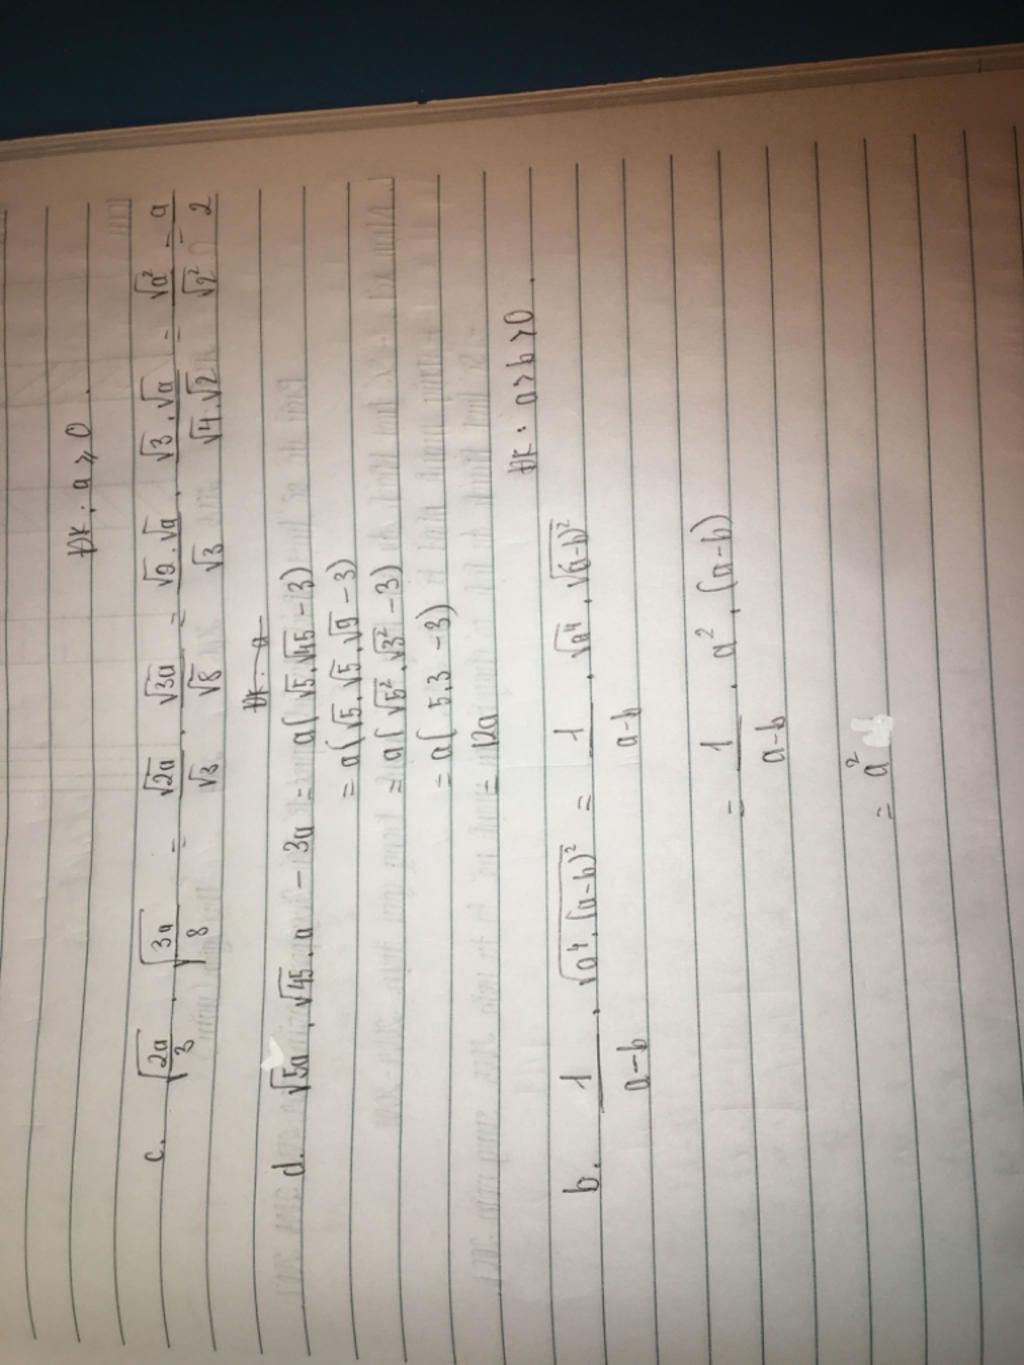 ĐK: a ≥ 0.
c. √(2a/3) . √(3a/8) = √2a/√3 . √3a/√8 = √2.√a/√3 . √3.√a/√4.√2 = √a²/√2² = a/2
ĐK: a
d. √5a . √45.a − 3a = a(√5.√45 − 3)
= a(√5.√5.√9 − 3)
= a(√5².√3² − 3)
= a(5.3 − 3)
= 12a
ĐK: a > b > 0.
b. 1/(a−b) . √(a⁴.(a−b)²) = 1/(a−b) . √a⁴ . √(a−b)²
= 1/(a−b) . a² . (a−b)
= a²